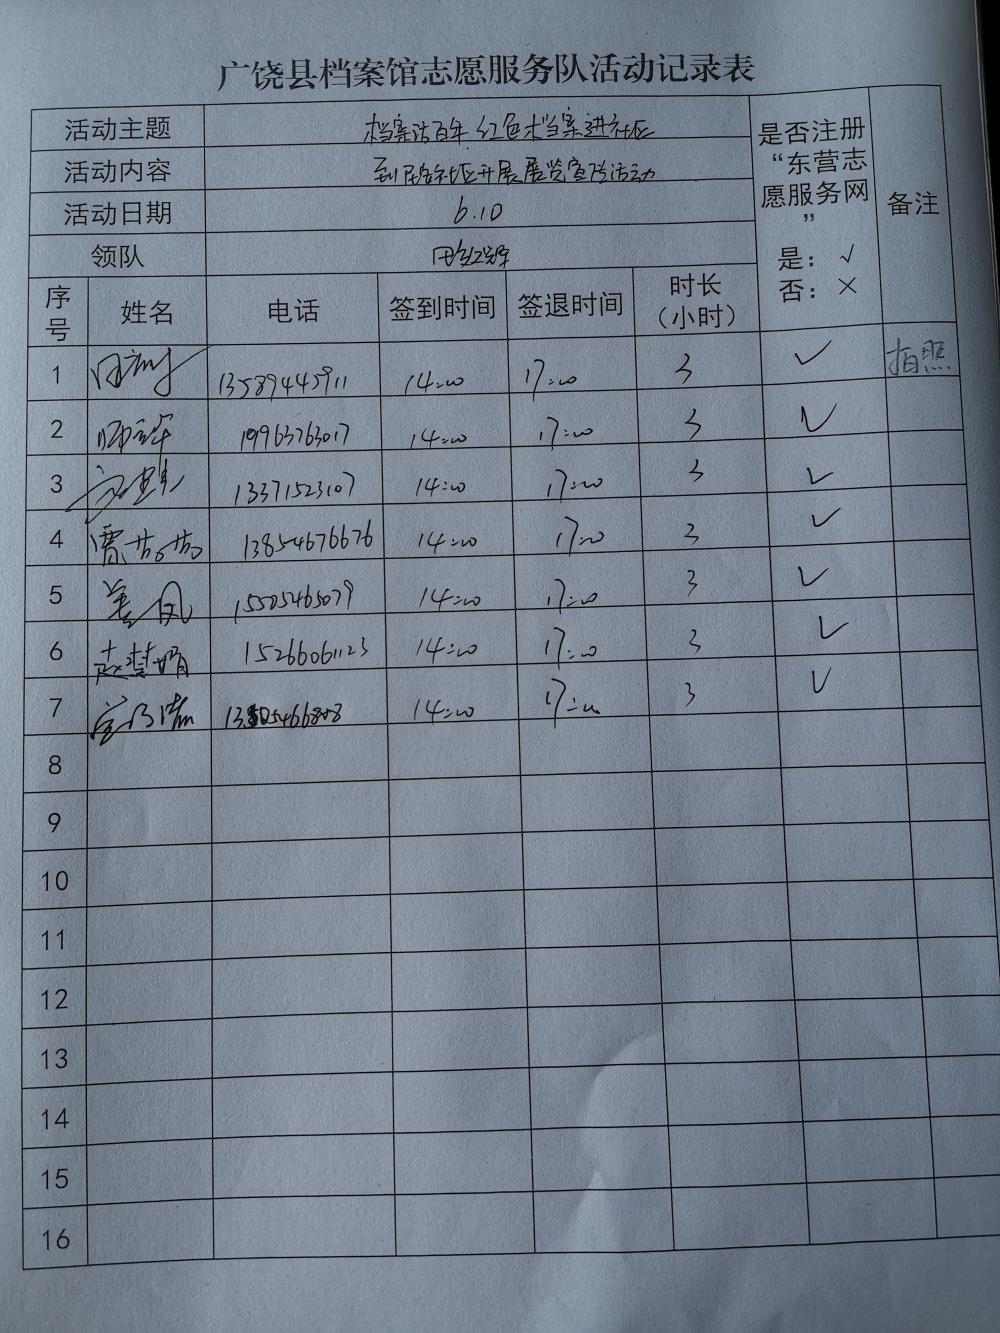 广饶县档案馆志愿服务队活动记录表
活动主题 档案话百年 红色档案进社区
活动内容 社区开展展览宣传活动
活动日期 6.10
领队
是否注册“东营志愿服务网” 是：√ 否：×
备注
序号 姓名 电话 签到时间 签退时间 时长（小时）
1 13589445911 14:00 17:00 3 √ 拍照
2 19963763017 14:00 17:00 3 √
3 13371523107 14:00 17:00 3 √
4 贾茹茹 13854676676 14:00 17:00 3 √
5 15505465079 14:00 17:00 3 √
6 赵慧娟 15266061123 14:00 17:00 3 √
7 14:00 17:00 3 √
8
9
10
11
12
13
14
15
16